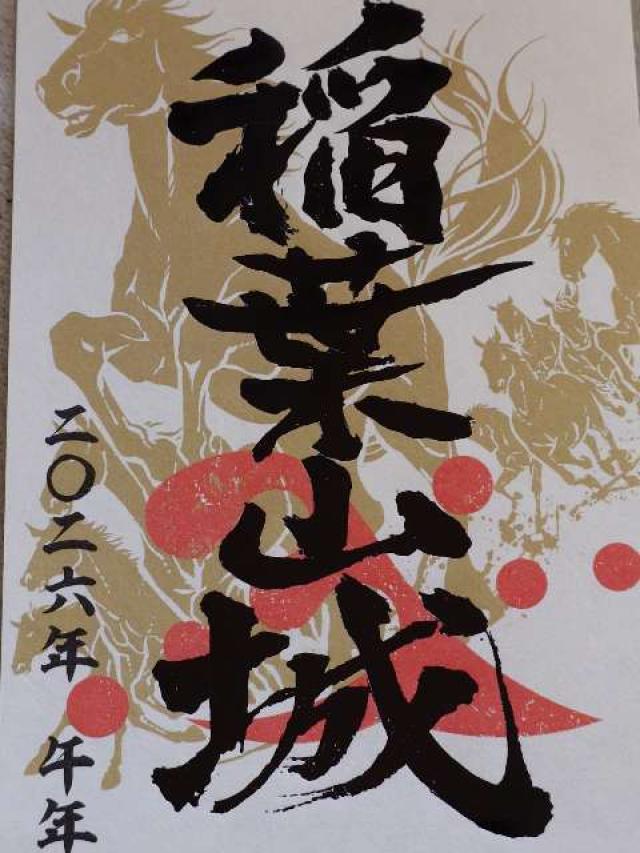 稲葉山城
二〇二六年 午年